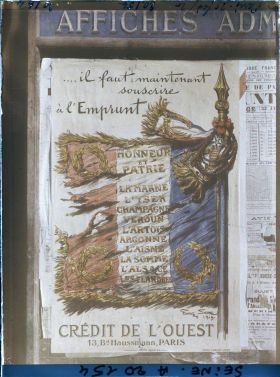 AFFICHES ADM
....il faut maintenant
souscrire
à l'Emprunt
HONNEUR
ET
PATRIE
LA MARNE
L'YSER
CHAMPAGNE
VERDUN
L'ARTOIS
ARGONNE
L'AISNE
LA SOMME
L'ALSACE
LES FLANDRES
CRÉDIT DE L'OUEST
13, Bd Haussmann, PARIS
SEINE. A 20 154